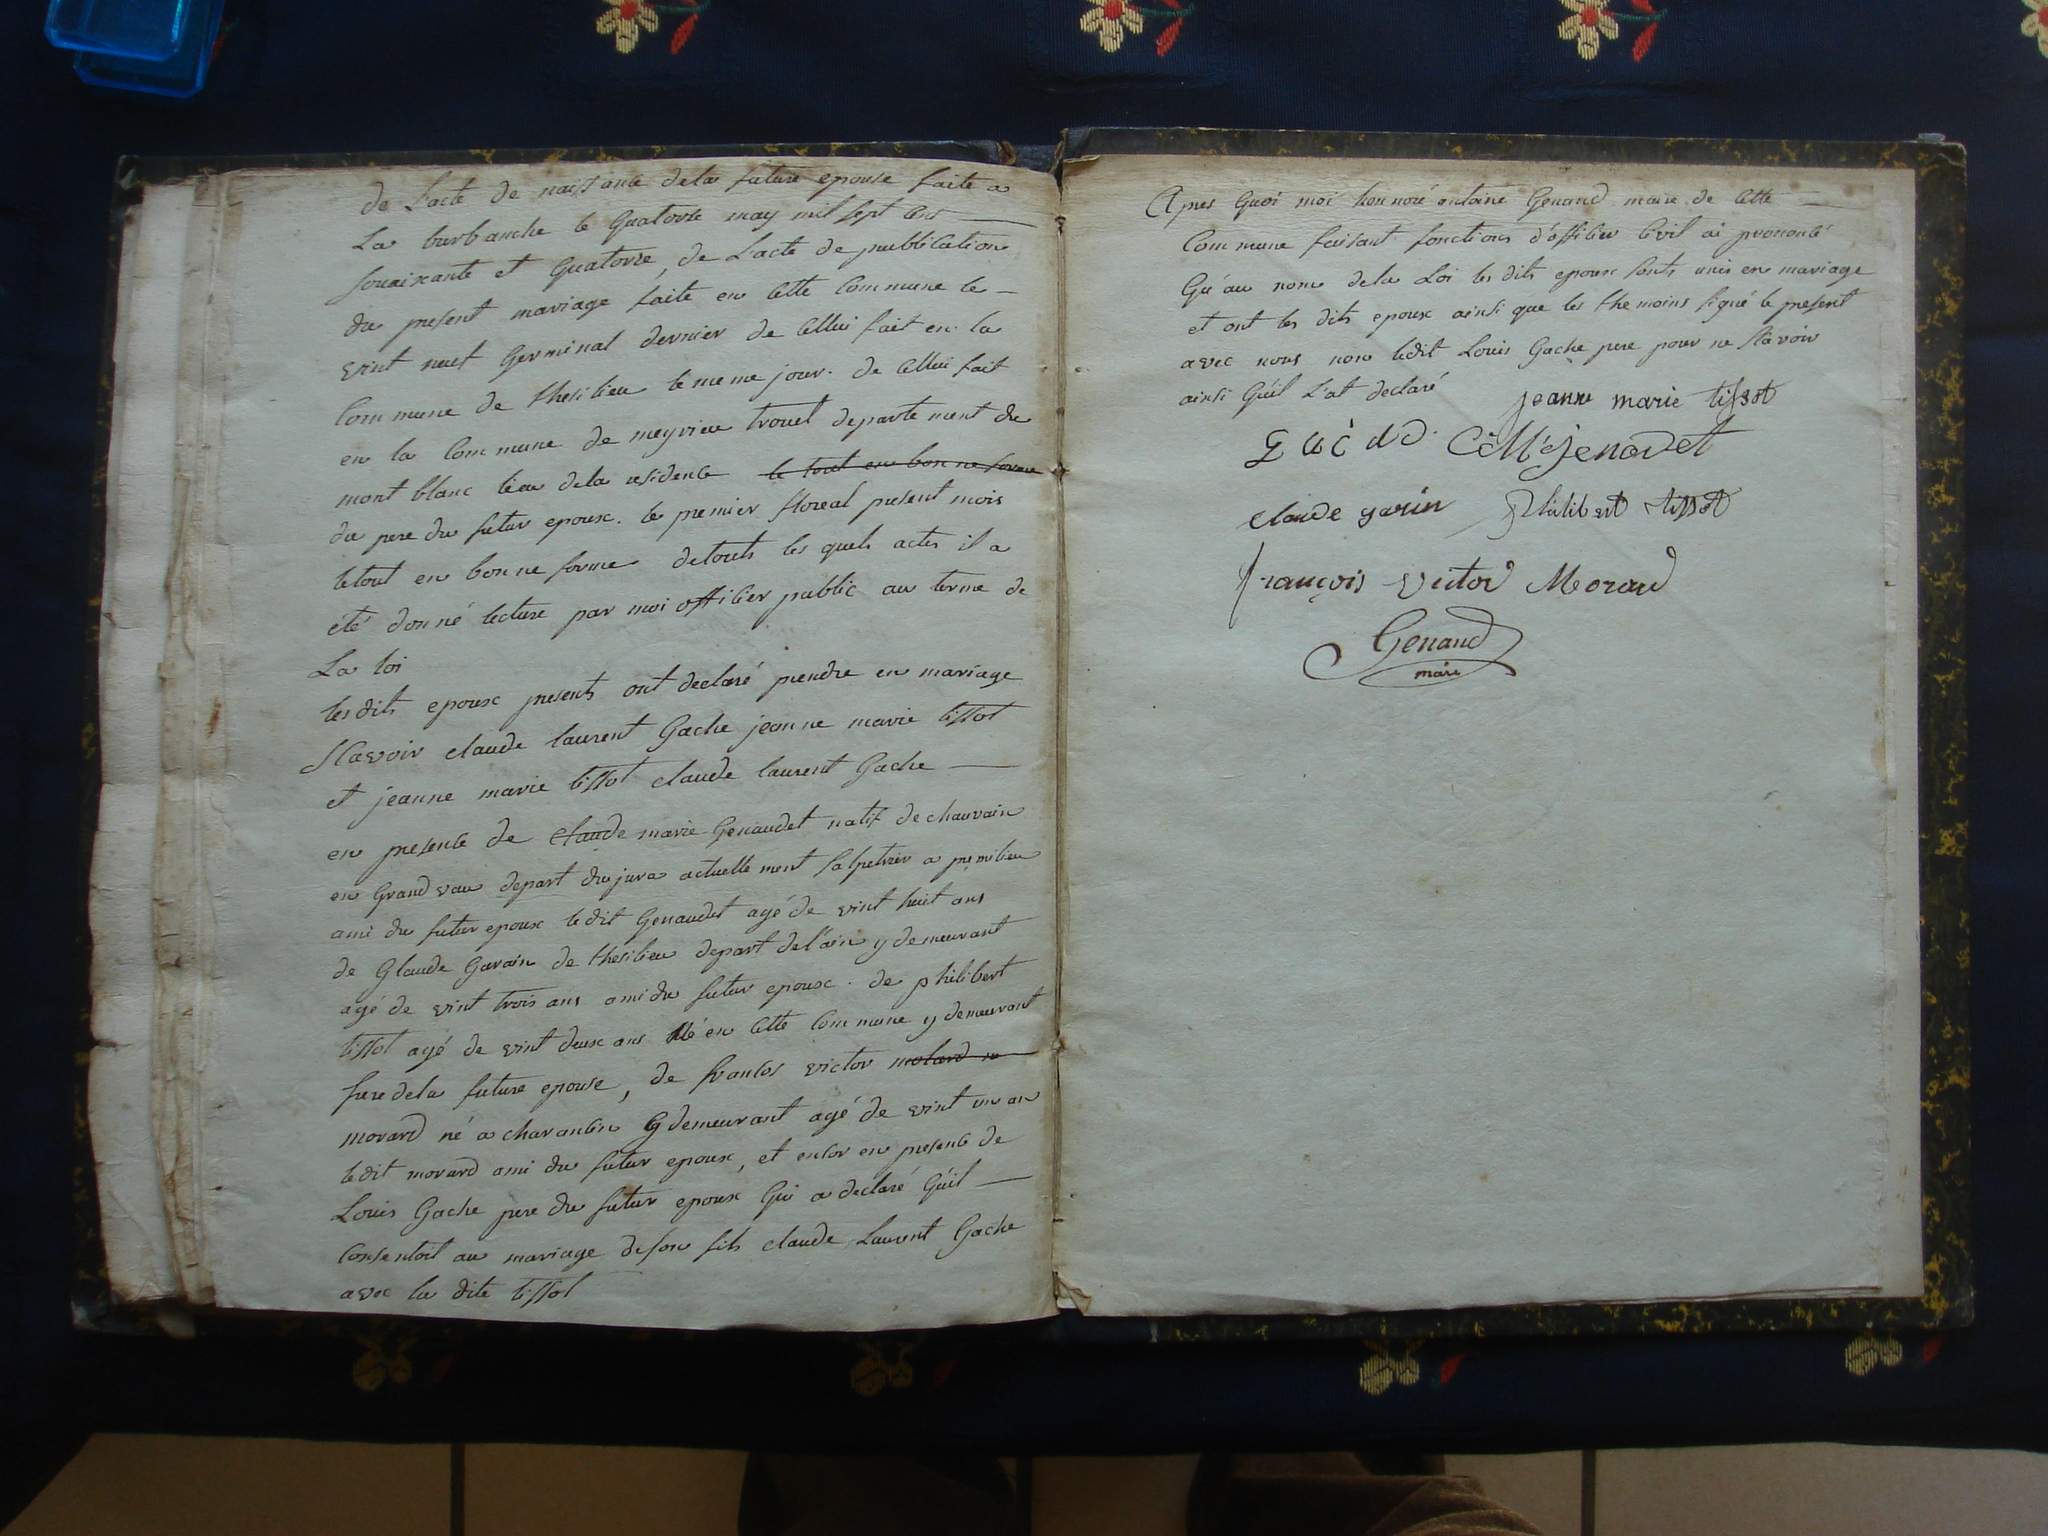 de L'acte de naissance dela future epouse faite a
La burbanche le Quatorze may mil sept cens
souaixante et Quatorze, de L'acte de publication
du present mariage faite en cette Commune le
vint neuf Germinal dernier de Cellui fait en la
Commune de thesilieu le meme jour. de Cellui fait
en la Commune de meyrieu trouet departement du
mont blanc lieu dela residence le tout en bonne forme
du pere du futur epoux. le premier floreal present mois
letout en bonne forme detouts les quels actes il a
eté donné lecture par moi officier public au terme de
La loi
les dits epoux presents ont declaré prendre en mariage
scavoir claude laurent Gache jeanne marie tissot
et jeanne marie tissot claude laurent Gache
en presence de claude marie Genaudet natif de chauvain
en Grand vau depart du jura actuellement salpetrier a premilieu
ami du futur epoux ledit Genaudet agé de vint huit ans
de Glaude Garain de thesilieu depart de l'ain y demeurant
agé de vint trois ans ami du futur epoux. de philibert
tissot agé de vint deux ans né en cette Commune y demeurant
frere dela future epouse, de francos victor molard
morard né a charancin y demeurant agé de vint un an
ledit morard ami du futur epoux, et encor en presence de
Louis Gache pere du futur epoux Qui a declaré Quil
Consentoit au mariage de son fils claude Laurent Gache
avec la dite tissot
Apres Quoi moi honnoré antoine Genand maire de cette
Commune faisant fonctions d'officier Civil ai prononcé
Qu'au nom dela Loi les dits epoux sonts unis en mariage
et ont les dits epoux ainsi que les themoins signé le present
avec nous non ledit Louis Gache pere pour ne scavoir
ainsi Quil L'at declaré
jeanne marie tissot
claude garin philibert tissot
françois victor Morard
Genand
maire